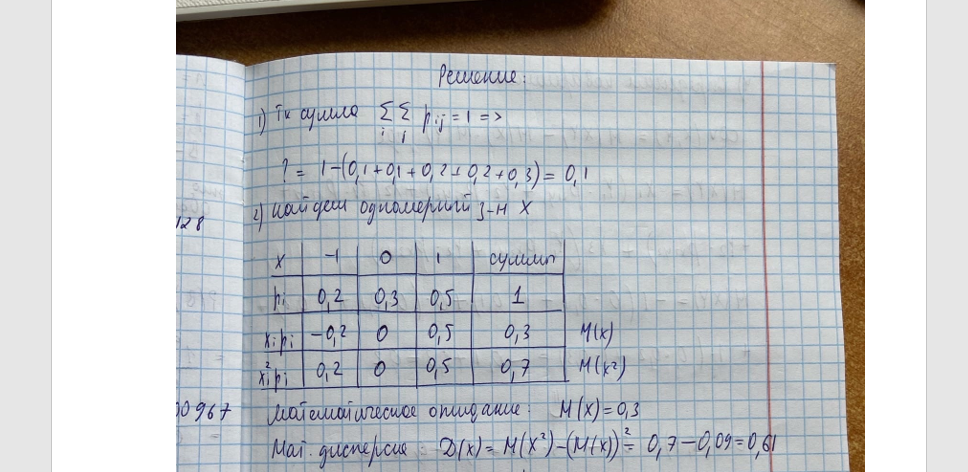 Решение:
1) Тк сумма ΣΣ pij = 1 =>
i j
? = 1-(0,1+0,1+0,2+0,2+0,3) = 0,1
2) Найдем одномерный з-н X
128
X -1 0 1 суммы
pi 0,2 0,3 0,5 1
xipi -0,2 0 0,5 0,3 M(x)
xi²pi 0,2 0 0,5 0,7 M(x²)
00967 Математическое ожидание: M(x)=0,3
Мат. дисперсия: D(x)= M(x²)-(M(x))²= 0,7-0,09=0,61